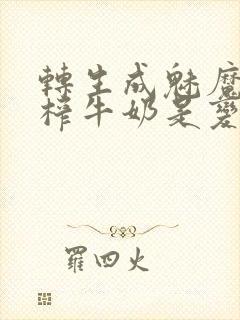 轉生成魅魔
榨牛奶是變
羅四火